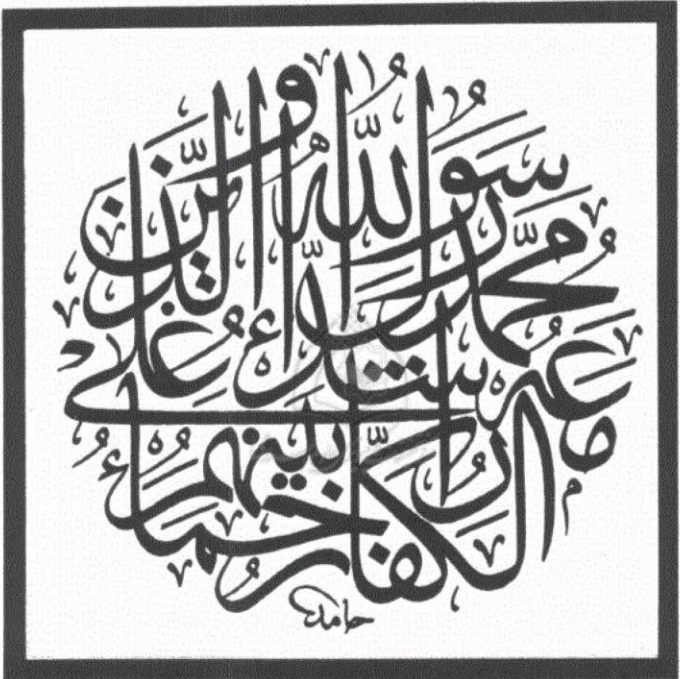 محمد رسول الله والذين معه أشداء على الكفار رحماء بينهم
حامد